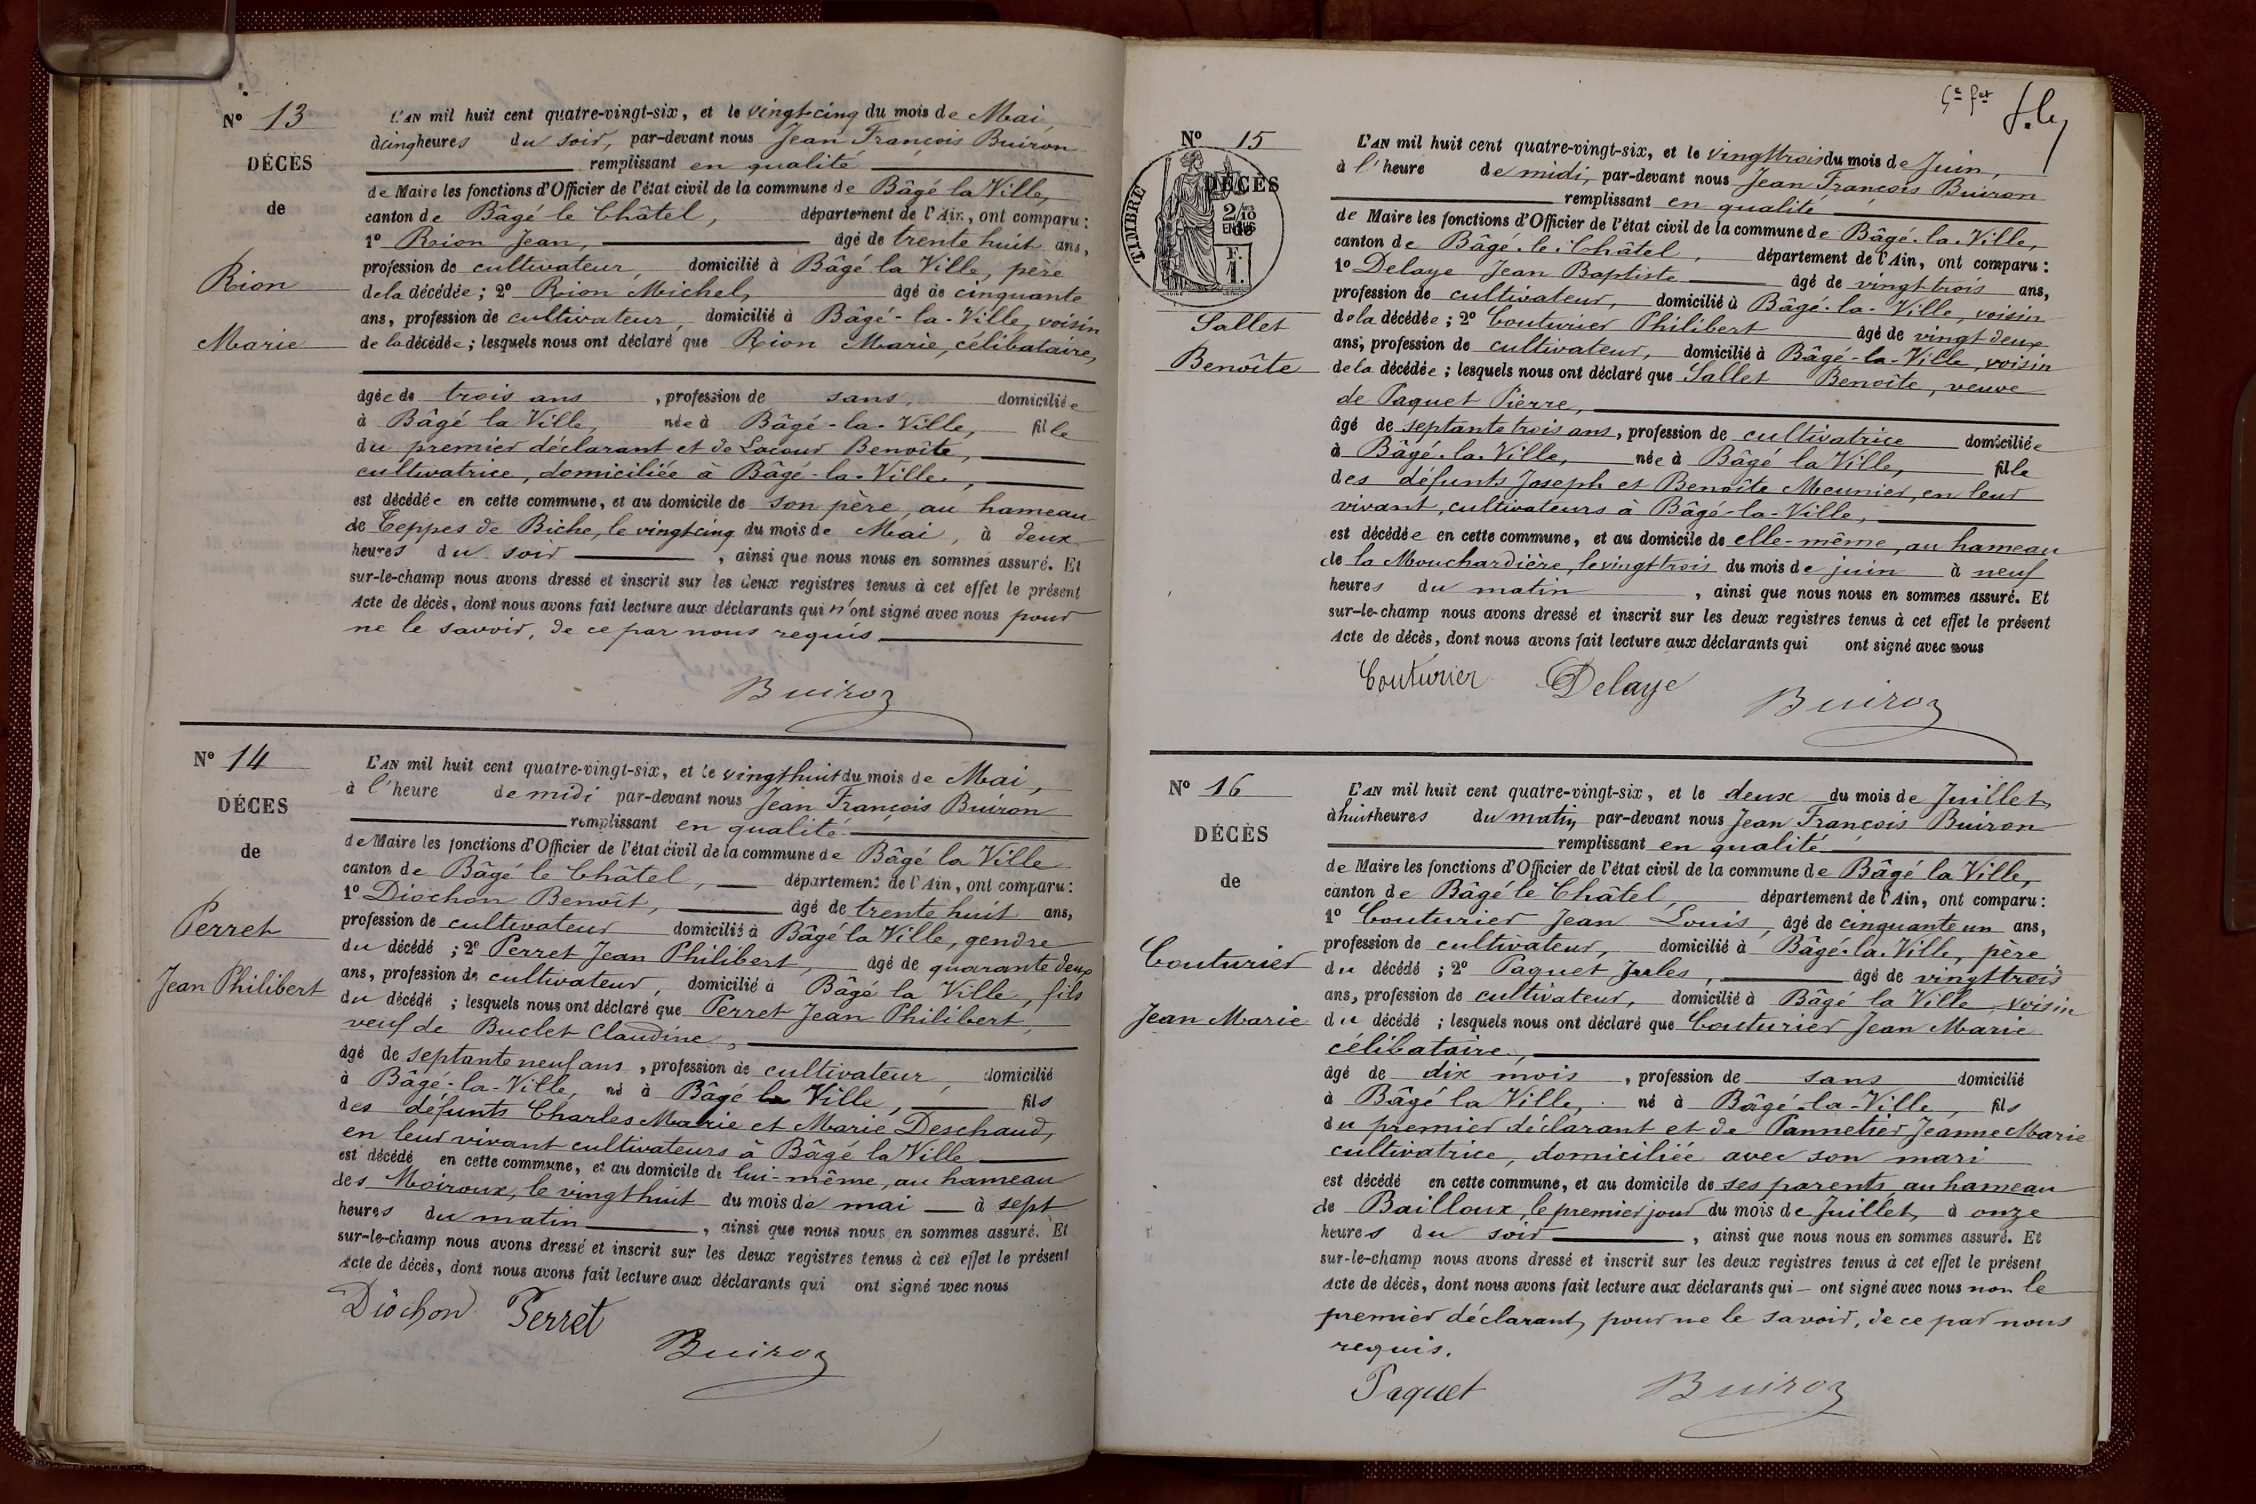 Nº 13
DÉCÈS
de
Rion
Marie
L'AN mil huit cent quatre-vingt-six, et le vingt-cinq du mois de Mai,
à cinq heures du soir, par-devant nous Jean François Buiron
remplissant en qualité
de Maire les fonctions d'Officier de l'état civil de la commune de Bâgé la Ville,
canton de Bâgé le Châtel, département de l'Ain, ont comparu :
1º Rion Jean, âgé de trente huit ans,
profession de cultivateur, domicilié à Bâgé la Ville, père
de la décédée ; 2º Rion Michel, âgé de cinquante
ans, profession de cultivateur, domicilié à Bâgé-la-Ville, voisin
de la décédée ; lesquels nous ont déclaré que Rion Marie, célibataire,
âgée de trois ans, profession de sans, domiciliée
à Bâgé la Ville, née à Bâgé-la-Ville, fille
du premier déclarant et de Locour Benoîte,
cultivatrice, domiciliée à Bâgé-la-Ville,
est décédée en cette commune, et au domicile de son père, au hameau
de Teppes de Biche, le vingt-cinq du mois de Mai, à deux
heures du soir, ainsi que nous nous en sommes assuré. Et
sur-le-champ nous avons dressé et inscrit sur les deux registres tenus à cet effet le présent
Acte de décès, dont nous avons fait lecture aux déclarants qui n'ont signé avec nous pour
ne le savoir, de ce par nous requis
Buiron
Nº 14
DÉCÈS
de
Perret
Jean Philibert
L'AN mil huit cent quatre-vingt-six, et le vingt huit du mois de Mai,
à l'heure de midi par-devant nous Jean François Buiron
remplissant en qualité
de Maire les fonctions d'Officier de l'état civil de la commune de Bâgé la Ville
canton de Bâgé le Châtel, département de l'Ain, ont comparu :
1º Diochon Benoît, âgé de trente huit ans,
profession de cultivateur domicilié à Bâgé la Ville, gendre
du décédé ; 2º Perret Jean Philibert, âgé de quarante deux
ans, profession de cultivateur, domicilié à Bâgé la Ville, fils
du décédé ; lesquels nous ont déclaré que Perret Jean Philibert,
veuf de Buclet Claudine,
âgé de septante neuf ans, profession de cultivateur, domicilié
à Bâgé-la-Ville, né à Bâgé la Ville, fils
des défunts Charles Marie et Marie Deschaud,
en leur vivant cultivateurs à Bâgé la Ville
est décédé en cette commune, et au domicile de lui-même, au hameau
des Moiroux, le vingt huit du mois de mai à sept
heures du matin, ainsi que nous nous en sommes assuré. Et
sur-le-champ nous avons dressé et inscrit sur les deux registres tenus à cet effet le présent
Acte de décès, dont nous avons fait lecture aux déclarants qui ont signé avec nous
Diochon Perret
Buiron
Nº 15
DÉCÈS
TIMBRE
2/10
EN SUS
F.
1.
Sallet
Benoîte
L'AN mil huit cent quatre-vingt-six, et le vingt trois du mois de Juin,
à l'heure de midi, par-devant nous Jean François Buiron
remplissant en qualité
de Maire les fonctions d'Officier de l'état civil de la commune de Bâgé-la-Ville,
canton de Bâgé-le-Châtel, département de l'Ain, ont comparu :
1º Delaye Jean Baptiste âgé de vingt trois ans,
profession de cultivateur, domicilié à Bâgé-la-Ville, voisin
de la décédée ; 2º Couturier Philibert âgé de vingt deux
ans, profession de cultivateur, domicilié à Bâgé-la-Ville, voisin
de la décédée ; lesquels nous ont déclaré que Sallet Benoîte, veuve
de Paquet Pierre,
âgé de septante trois ans, profession de cultivatrice domiciliée
à Bâgé-la-Ville, née à Bâgé la Ville, fille
des défunts Joseph et Benoîte Meunier, en leur
vivant, cultivateurs à Bâgé-la-Ville,
est décédée en cette commune, et au domicile de elle-même, au hameau
de la Mouchardière, le vingt trois du mois de juin à neuf
heures du matin, ainsi que nous nous en sommes assuré. Et
sur-le-champ nous avons dressé et inscrit sur les deux registres tenus à cet effet le présent
Acte de décès, dont nous avons fait lecture aux déclarants qui ont signé avec nous
Couturier Delaye Buiron
Nº 16
DÉCÈS
de
Couturier
Jean Marie
L'AN mil huit cent quatre-vingt-six, et le deux du mois de Juillet,
à huit heures du matin, par-devant nous Jean François Buiron
remplissant en qualité
de Maire les fonctions d'Officier de l'état civil de la commune de Bâgé la Ville,
canton de Bâgé le Châtel, département de l'Ain, ont comparu :
1º Couturier Jean Louis, âgé de cinquante un ans,
profession de cultivateur, domicilié à Bâgé-la-Ville, père
du décédé ; 2º Paquet Jules, âgé de vingt trois
ans, profession de cultivateur, domicilié à Bâgé la Ville, voisin
du décédé ; lesquels nous ont déclaré que Couturier Jean Marie
célibataire,
âgé de dix mois, profession de sans domicilié
à Bâgé la Ville, né à Bâgé-la-Ville, fils
du premier déclarant et de Pannetier Jeanne Marie
cultivatrice, domiciliée avec son mari
est décédé en cette commune, et au domicile de ses parents, au hameau
de Bailloux, le premier jour du mois de Juillet, à onze
heures du soir, ainsi que nous nous en sommes assuré. Et
sur-le-champ nous avons dressé et inscrit sur les deux registres tenus à cet effet le présent
Acte de décès, dont nous avons fait lecture aux déclarants qui – ont signé avec nous non le
premier déclarant, pour ne le savoir, de ce par nous
requis.
Paquet Buiron